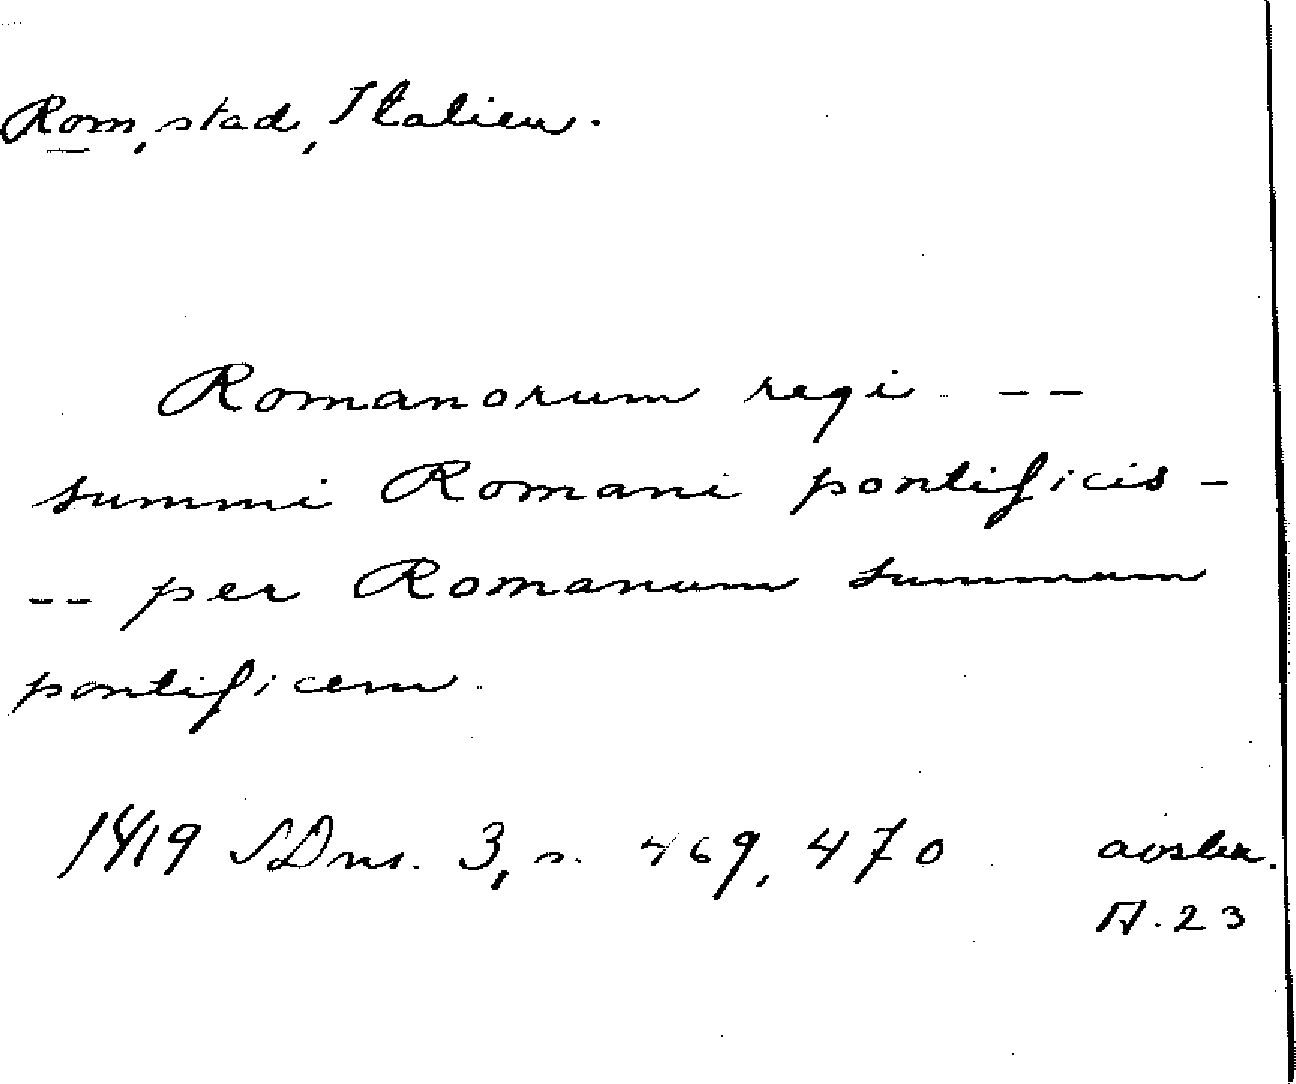 Rom, stad, Italien.
Romanorum regi - -
summi Romani pontificis -
- - per Romanum summum
pontificem.
1419 SDns. 3, s. 469, 470 avskr.
A. 23